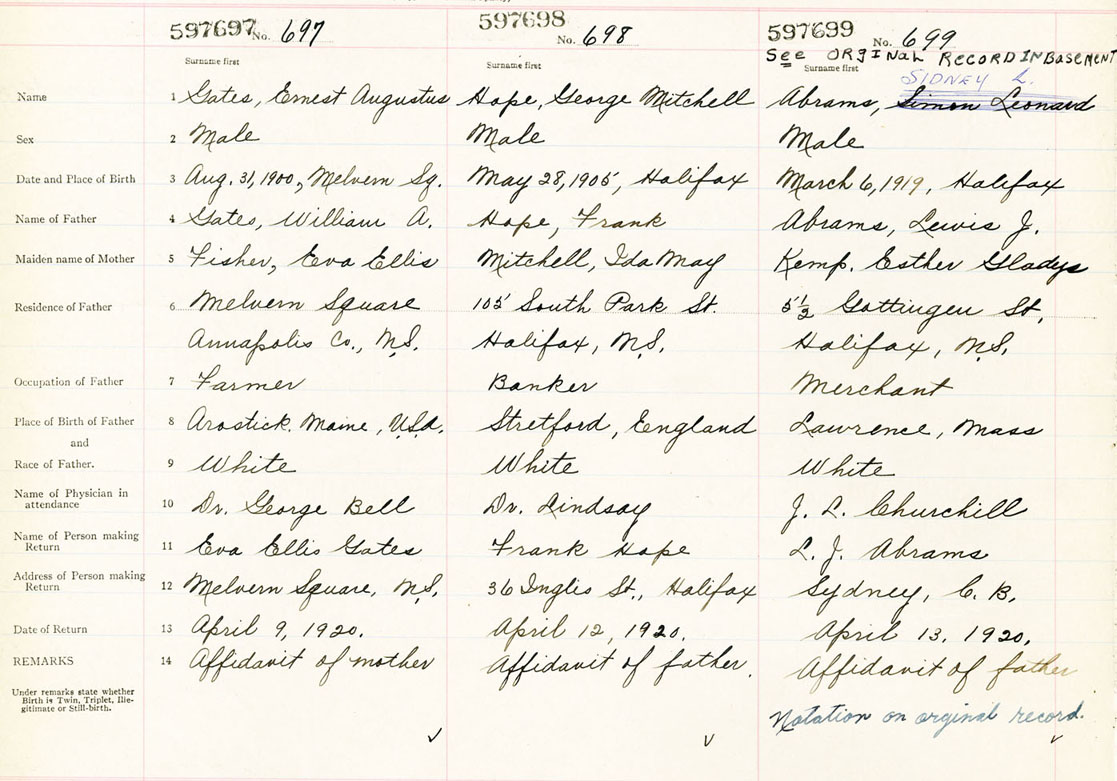 597697 No. 697 597698 No. 698 597699 No. 699
See ORGINal RECORD IN BASEMENT
Surname first Surname first Surname first
SIDNEY L.
Name 1 Gates, Ernest Augustus Hope, George Mitchell Abrams, Simon Leonard
Sex 2 Male Male Male
Date and Place of Birth 3 Aug. 31, 1900, Melvern Sq. May 28, 1905, Halifax March 6, 1919, Halifax
Name of Father 4 Gates, William A. Hope, Frank Abrams, Lewis J.
Maiden name of Mother 5 Fisher, Eva Ellis Mitchell, Ida May Kemp. Esther Gladys
Residence of Father 6 Melvern Square 105 South Park St. 5½ Gottingen St,
Annapolis Co., N.S. Halifax, N.S. Halifax, N.S.
Occupation of Father 7 Farmer Banker Merchant
Place of Birth of Father 8 Arostick. Maine, U.S.A. Stretford, England Lawrence, Mass
and
Race of Father. 9 White White White
Name of Physician in
attendance 10 Dr. George Bell Dr. Lindsay J. L. Churchill
Name of Person making
Return 11 Eva Ellis Gates Frank Hope L. J. Abrams
Address of Person making
Return 12 Melvern Square, N.S. 36 Inglis St., Halifax Sydney, C. B.
Date of Return 13 April 9, 1920. April 12, 1920. April 13, 1920.
REMARKS 14 Affidavit of mother Affidavit of father. Affidavit of father
Under remarks state whether
Birth is Twin, Triplet, Ille-
gitimate or Still-birth.
Notation on orginal record.